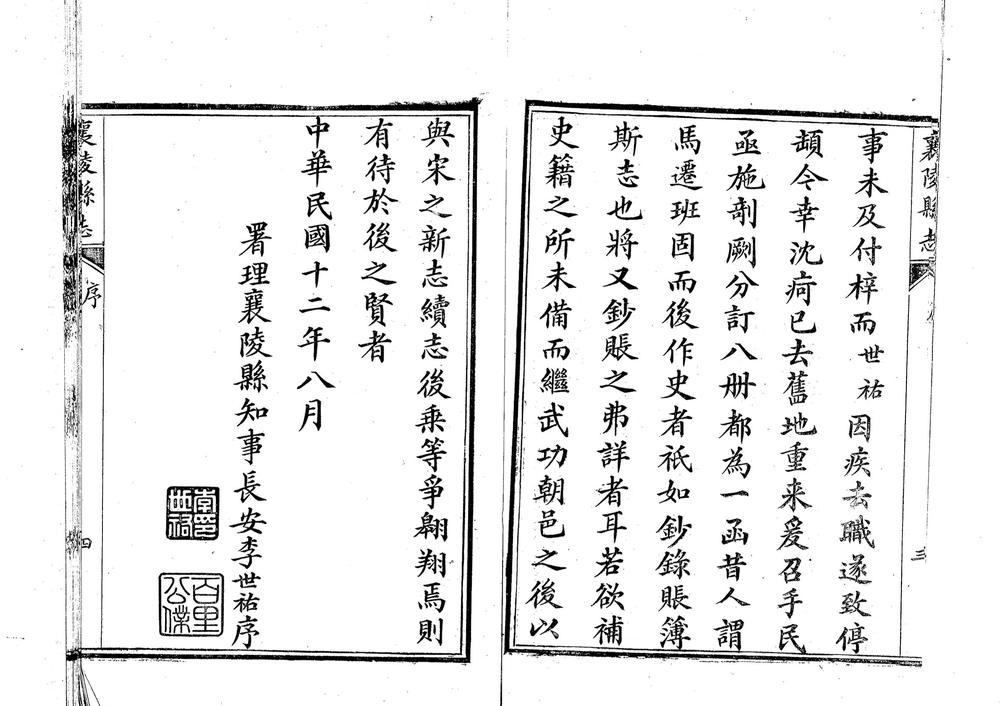 襄陵縣志
三
事未及付梓而世祐因疾去職遂致停
頓今幸沈疴已去舊地重来爰召手民
亟施剞劂分訂八册都為一函昔人謂
馬遷班固而後作史者祇如鈔錄賬簿
斯志也將又鈔賬之弗詳者耳若欲補
史籍之所未備而繼武功朝邑之後以
與宋之新志續志後乗等爭翱翔焉則
有待於後之賢者
中華民國十二年八月
署理襄陵縣知事長安李世祐序
李印世祐
百里公僕
襄陵縣志
序
四